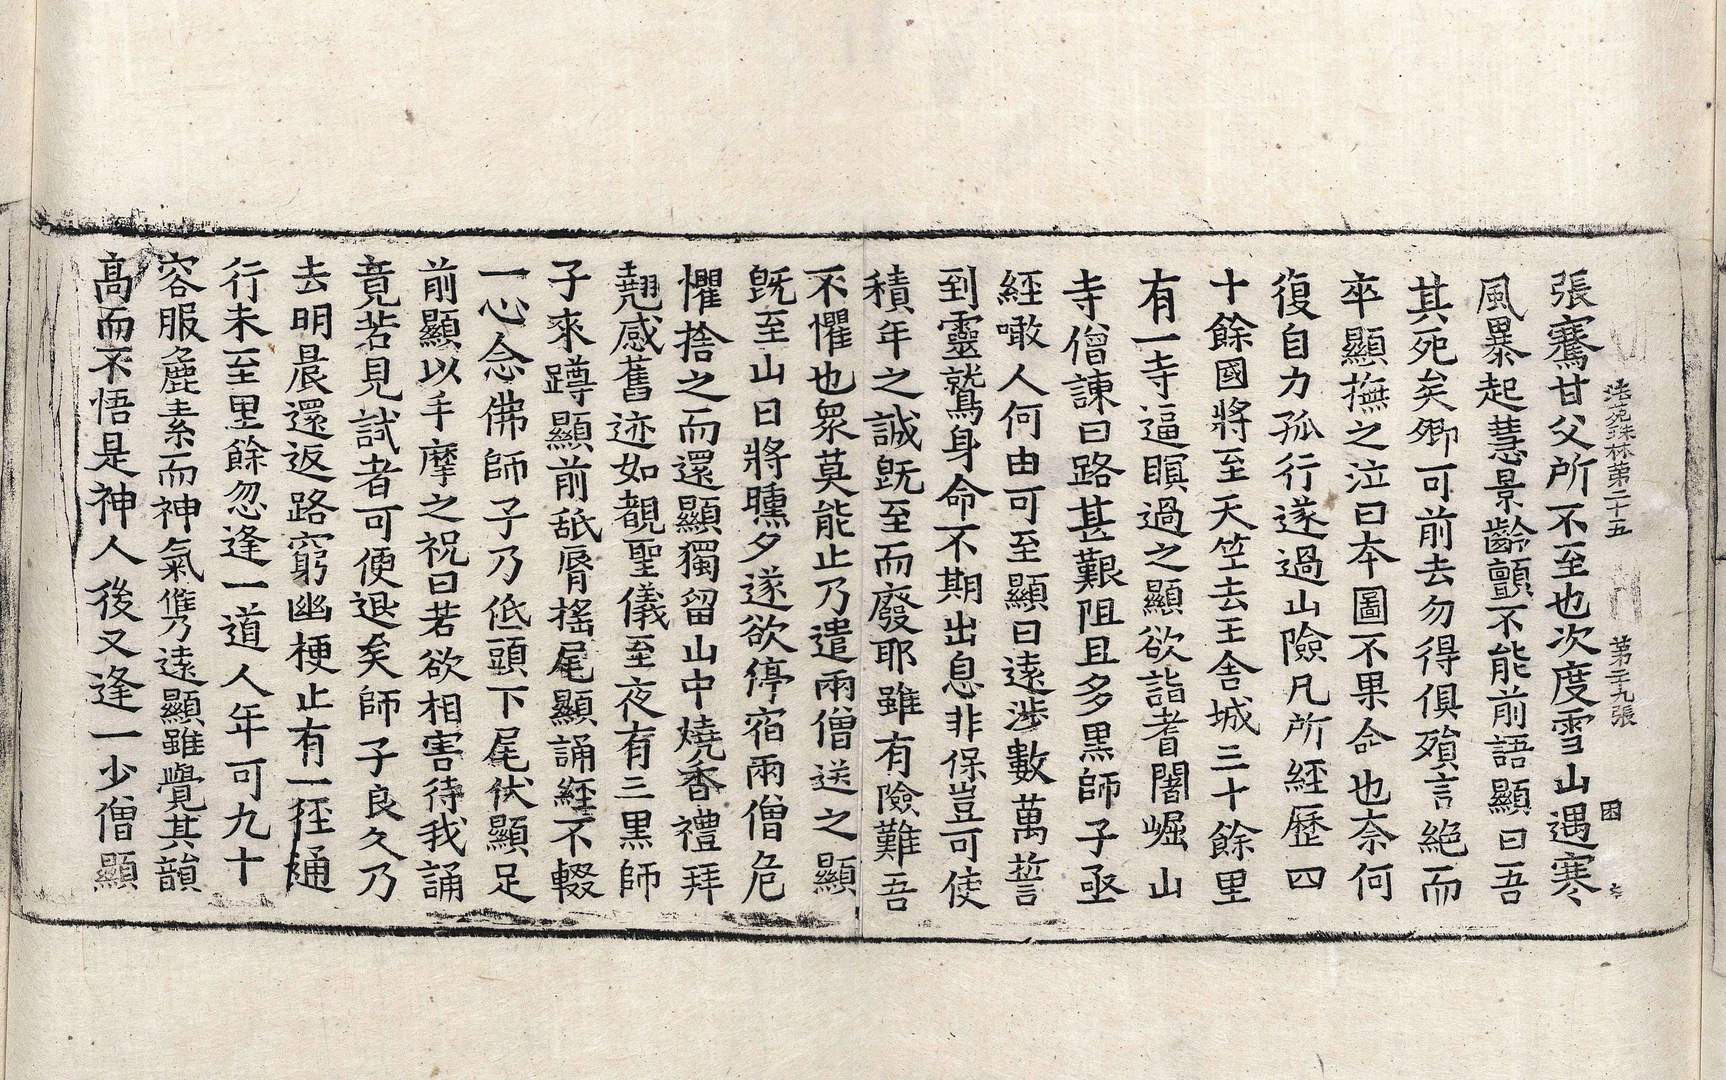 法苑珠林第二十五　第二十九張　困
張騫甘父所不至也次度雪山遇寒
風暴起慧景齡顫不能前語顯曰吾
其死矣卿可前去勿得俱殞言絶而
卒顯撫之泣曰本圖不果命也奈何
復自力孤行遂過山險凡所經歷四
十餘國將至天竺去王舍城三十餘里
有一寺逼暝過之顯欲詣耆闍崛山
寺僧諫曰路甚艱阻且多黑師子亟
經噉人何由可至顯曰遠涉數萬誓
到靈鷲身命不期出息非保豈可使
積年之誠旣至而廢耶雖有險難吾
不懼也衆莫能止乃遣兩僧送之顯
旣至山日將曛夕遂欲停宿兩僧危
懼捨之而還顯獨留山中燒香禮拜
翹感舊迹如覩聖儀至夜有三黑師
子來蹲顯前舐脣搖尾顯誦經不輟
一心念佛師子乃低頭下尾伏顯足
前顯以手摩之祝曰若欲相害待我誦
竟若見試者可便退矣師子良久乃
去明晨還返路窮幽梗止有一徑通
行未至里餘忽逢一道人年可九十
容服麁素而神氣儁遠顯雖覺其韻
髙而不悟是神人後又逢一少僧顯